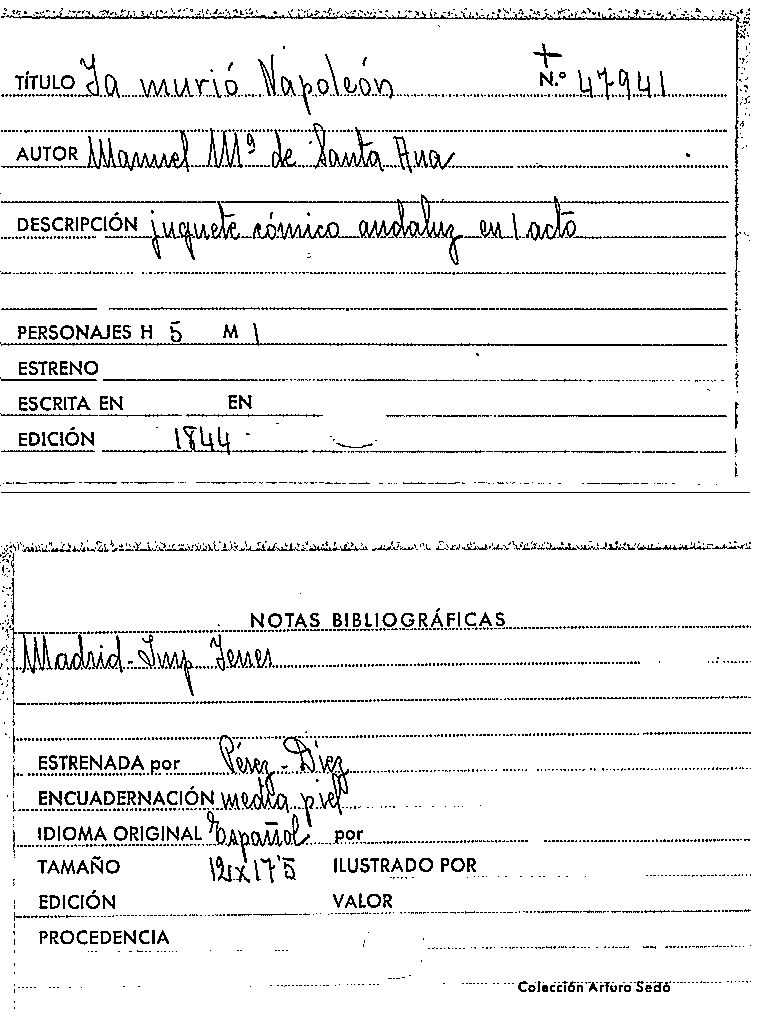 TÍTULO Ya murió Napoleón N.º 47941
AUTOR Manuel Mª de Santa Ana
DESCRIPCIÓN juguete cómico andaluz en 1 acto
PERSONAJES H 5 M 1
ESTRENO
ESCRITA EN EN
EDICIÓN 1844
NOTAS BIBLIOGRÁFICAS
Madrid-Imp Yenes
ESTRENADA por Pérez - Díez
ENCUADERNACIÓN media piel
IDIOMA ORIGINAL Español por
TAMAÑO 12x17'5 ILUSTRADO POR
EDICIÓN VALOR
PROCEDENCIA
Colección Arturo Sedó